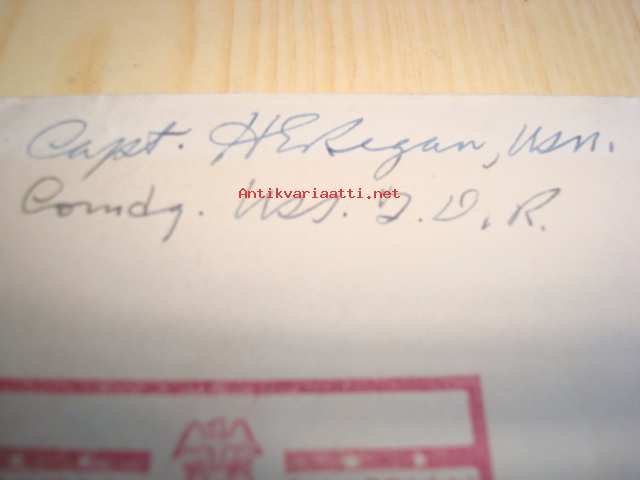 Capt. H E Regan, USN.
Antikvariaatti.net
Comdg. USS. F. D. R.